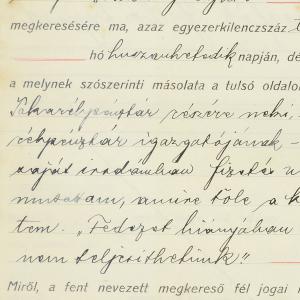 megkeresésére ma, azaz egyezerkilenczszáz
hó huszonhetedik napján, dé
a melynek szószerinti másolata a tulsó oldalo
Takarékpénztár részére neki,
récpénztár igazgatójának -
saját irodámban fizetés v
mutattam, amire tőle a k
tem. "Fedezet hiányában
nem teljesithetünk!"
Miről, a fent nevezett megkereső fél jogai